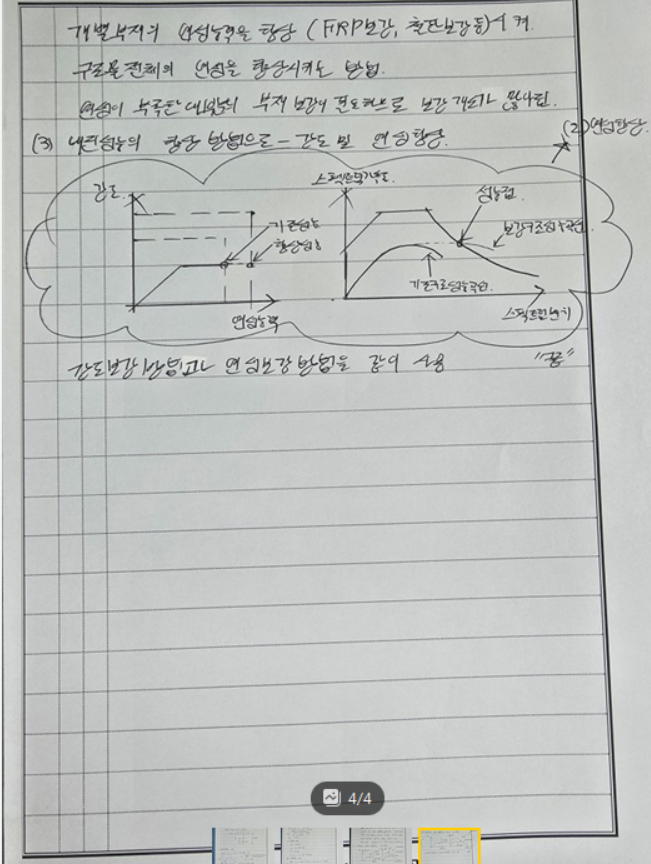 개별부재의 연성능력을 향상 (FRP보강, 철판보강 등) 시켜
구조물 전체의 연성을 향상시키는 방법.
연성이 부족한 대부분의 부재 보강이 필요하므로 보강개소가 많아짐.
(3) 내진성능의 향상 방법으로 - 강도 및 연성향상.
(2) 연성향상.
강도
기존성능
향상성능
연성능력
스펙트럼가속도.
성능점
보강구조성능곡선
기존구조성능곡선.
스펙트럼변위
강도보강방법과 연성보강방법을 같이 사용
"끝"
4/4